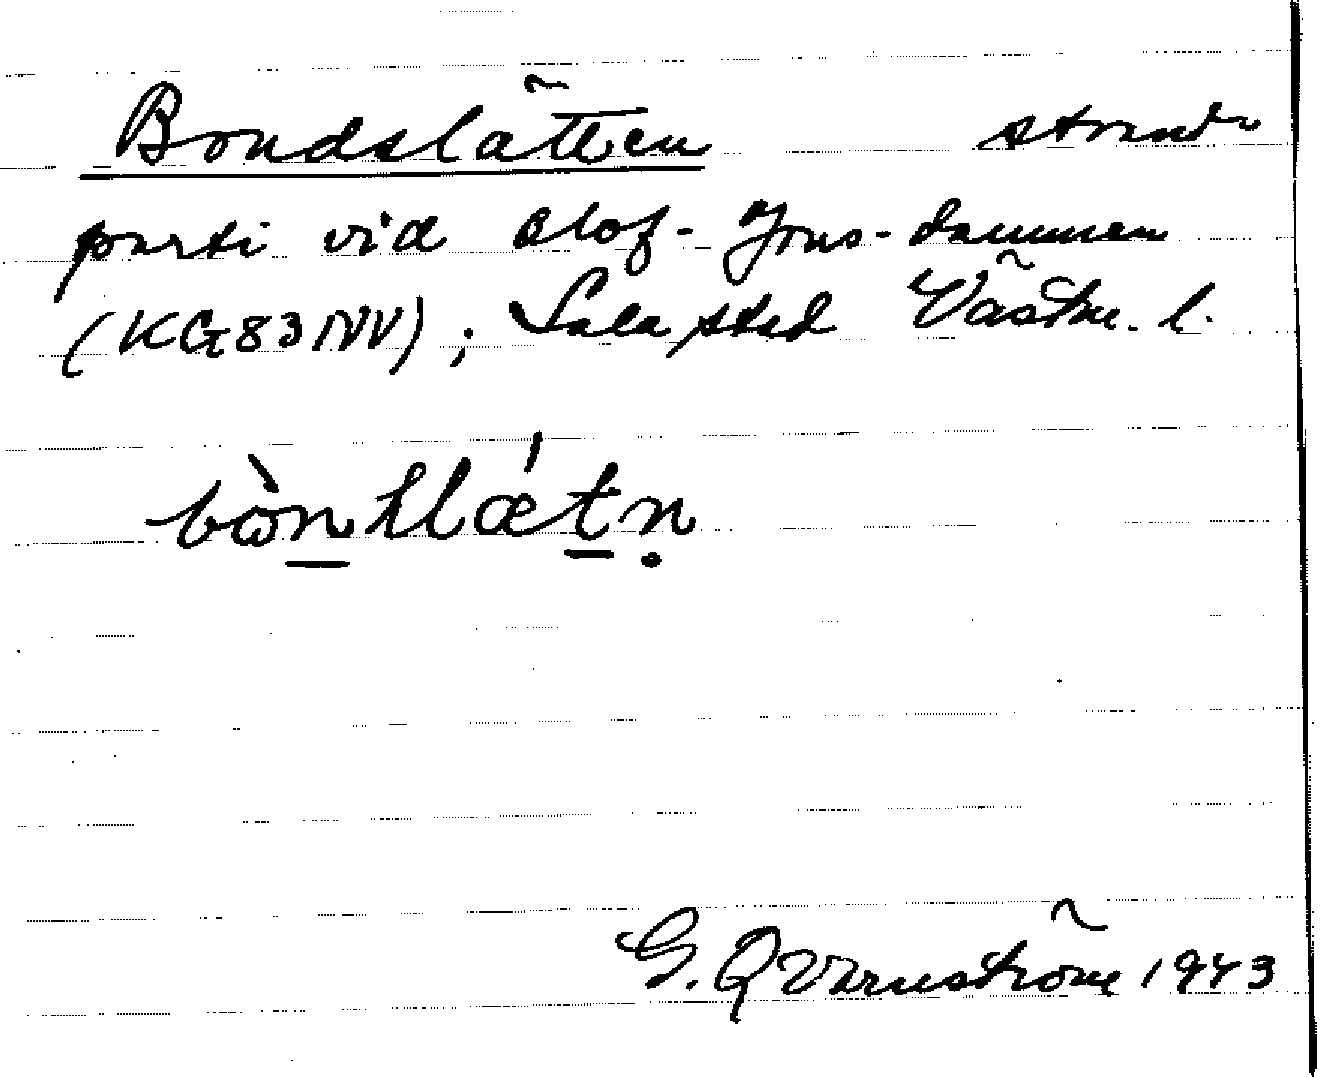 Bondslätten strand-
parti vid Olof-Jons-dammen
(KG83NV); Sala stad Västm. l.
bònslǽtṇ
G. Qvarnström 1943